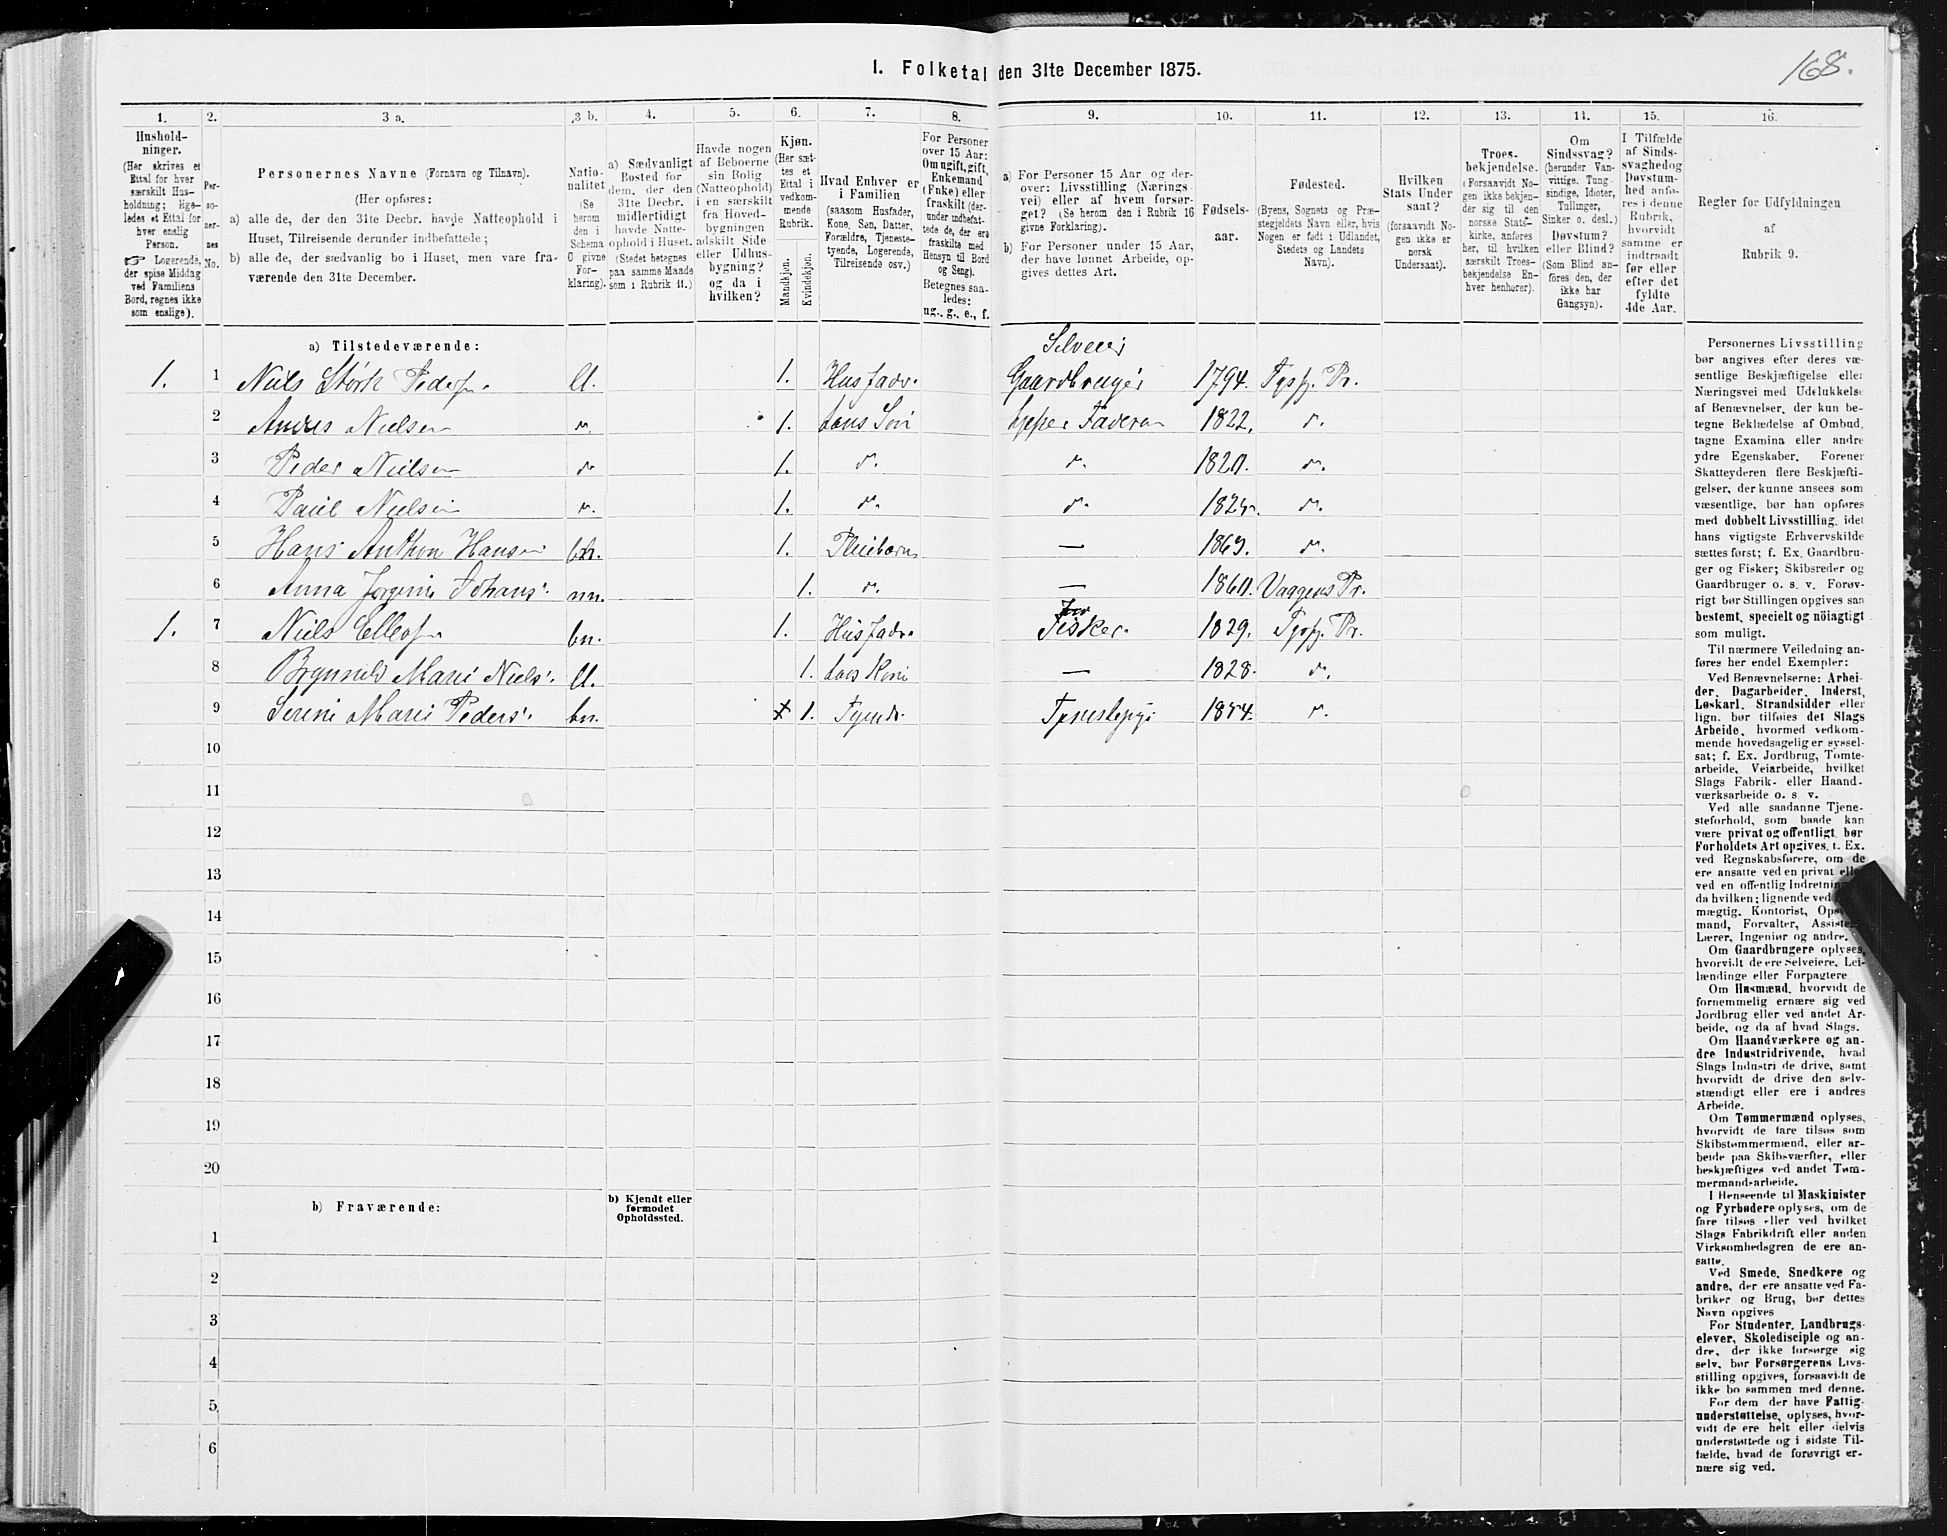 168.
1. Folketal den 31te December 1875.
1. 2. 3 a. 3 b. 4. 5. 6. 7. 8. 9. 10. 11. 12. 13. 14. 15. 16.
Hushold-
ninger.
(Her skrives et
Ettal for hver
særskilt Hus-
holdning; lige-
ledes et Ettal for
hver enslig
Person.
☞ Logerende,
der spise Middag
ved Familiens
Bord, regnes ikke
som enslige).
Per-
so-
ner-
nes
No.
Personernes Navne (Fornavn og Tilnavn).
(Her opføres:
a) alle de, der den 31te Decbr. havde Natteophold i
Huset, Tilreisende derunder indbefattede;
b) alle de, der sædvanlig bo i Huset, men vare fra-
værende den 31te December.
Natio-
nalitet
(Se
herom
den i
Schema
O givne
For-
klaring).
a) Sædvanligt
Bosted for
dem, der den
31te Decbr.
midlertidigt
havde Natte-
ophold i Huset.
(Stedet betegnes
paa samme Maade
som i Rubrik 11.)
Havde nogen
af Beboerne
sin Bolig
(Natteophold)
i en særskilt
fra Hoved-
bygningen
adskilt Side-
eller Udhus-
bygning?
og da i
hvilken?
Kjøn.
(Her sæt-
tes et
Ettal i
vedkom-
mende
Rubrik.
Mandkjøn.
Kvindekjøn.
Hvad Enhver er
i Familien
(saasom Husfader,
Kone, Søn, Datter,
Forældre, Tjeneste-
tyende, Logerende,
Tilreisende osv.)
For Personer
over 15 Aar:
Om ugift, gift,
Enkemand
(Enke) eller
fraskilt (der-
under indbefat-
tede de, der ere
fraskilte med
Hensyn til Bord
og Seng).
Betegnes saa-
ledes:
ug., g., e., f.
a) For Personer 15 Aar og der-
over: Livsstilling (Nærings-
vei) eller af hvem forsør-
get? (Se herom den i Rubrik 16
givne Forklaring).
b) For Personer under 15 Aar,
der have lønnet Arbeide, op-
gives dettes Art.
Fødsels-
aar.
Fødested.
(Byens, Sognets og Præ-
stegjeldets Navn eller, hvis
Nogen er født i Udlandet,
Stedets og Landets
Navn).
Hvilken
Stats Under
saat?
(forsaavidt No-
gen ikke er
norsk
Undersaat).
Troes-
bekjendelse.
(Forsaavidt No-
gen ikke bekjen-
der sig til den
norske Stats-
kirke, anføres
her, til hvilken
særskilt Troes-
bekjendelse En-
hver henhører).
Om
Sindssvag?
(herunder Van-
vittige, Tung-
sindige, Idioter,
Tullinger,
Sinker o. desl.)
Døvstum?
eller Blind?
(Som Blind an-
føres den, der
ikke har
Gangsyn).
I Tilfælde
af Sinds-
svaghed og
Døvstum-
hed anfø-
res i denne
Rubrik,
hvorvidt
samme er
indtraadt
før eller
efter det
fyldte
4de Aar.
Regler for Udfyldningen
af
Rubrik 9.
a) Tilstedeværende:
Selveier
1. 1 Niels Størk Peders. ll. 1. Husfadr. Gaardbruger 1794. Tysfj. Pr.
2 Anders Nielsen 1. hans Søn hjelper Faderen 1822.
3 Peder Nielsen 1. 1820.
4 Paul Nielsen 1.
5 Hans Anthon Hansen bn. 1. Pleiebarn — 1863.
6 Anna Jørgine Johans. nn. 1. — 1860. Vaagens Pr.
1. 7 Niels Ellefs. bn. 1. Husfadr. Fisker. 1829. Tysfj. Pr.
8 Brynnild Marie Niels. ll. 1. hans Kone — 1828.
9 Serine Marie Peders. bn. 1. Tyende 1854.
10
11
12
13
14
15
16
17
18
19
20
b) Fraværende:
b) Kjendt eller
formodet
Opholdssted.
1
2
3
4
5
6
Personernes Livsstilling
bør angives efter deres væ-
sentlige Beskjæftigelse eller
Næringsvei med Udelukkelse
af Benævnelser, der kun be-
tegne Beklædelse af Ombud,
tagne Examina eller andre
ydre Egenskaber. Forener
Skatteyderen flere Beskjæfti-
gelser, der kunne ansees som
væsentlige, bør han opføres
med dobbelt Livsstilling, idet
hans vigtigste Erhvervskilde
sættes først; f. Ex. Gaardbru-
ger og Fisker; Skibsreder og
Gaardbruger o. s. v. Forøv-
rigt bør Stillingen opgives saa
bestemt, specielt og nöiagtigt
som muligt.
Til nærmere Veiledning an-
føres her endel Exempler:
Ved Benævnelserne: Arbei-
der, Dagarbeider, Inderst,
Løskarl, Strandsidder eller
lign. bør tilføies det Slags
Arbeide, hvormed vedkom-
mende hovedsagelig er syssel-
sat; f. Ex. Jordbrug, Tomte-
arbeide, Veiarbeide, hvilket
Slags Fabrik- eller Haand-
værksarbeide o. s. v.
Ved alle saadanne Tjene-
steforhold, som baade kan
være privat og offentligt, bør
Forholdets Art opgives, t. Ex.
ved Regnskabsførere, om de
ere ansatte ved en privat eller
ved en offentlig Indretning
da hvilken; lignende ved
mægtig, Kontorist, Ops
mand, Forvalter, Assisten
Lærer, Ingeniør og andre.
Om Gaardbrugere oplyses,
hvorvidt de ere Selveiere, Lei-
lændinge eller Forpagtere
Om Husmænd, hvorvidt de
fornemmelig ernære sig ved
Jordbrug eller ved andet Ar-
beide, og da af hvad Slags.
Om Haandværkere og an-
dre Industridrivende, hvad
Slags Industri de drive, samt
hvorvidt de drive den selv-
stændigt eller ere i andres
Arbeide.
Om Tømmermænd oplyses,
hvorvidt de fare tilsøs som
Skibstømmermænd, eller ar-
beide paa Skibsværfter, eller
beskjæftiges ved andet Tøm-
mermandsarbeide.
I Henseende til Maskinister
og Fyrbødere oplyses, om de
fare tilsøs eller ved hvilket
Slags Fabrikdrift eller anden
Virksomhedsgren de ere an-
satte.
Ved Smede, Snedkere og
andre, der ere ansatte ved Fa-
briker og Brug, bør dettes
Navn opgives
For Studenter, Landbrugs-
elever, Skoledisciple og an-
dre, der ikke forsørge sig
selv, bør Forsørgerens Livs-
stilling opgives, forsaavidt de
ikke bo sammen med denne.
For dem der have Fattig-
understøttelse, oplyses, hvor-
vidt de ere helt eller delvis
understøttede og i sidste Til-
fælde, hvad de forøvrigt er-
nære sig ved.